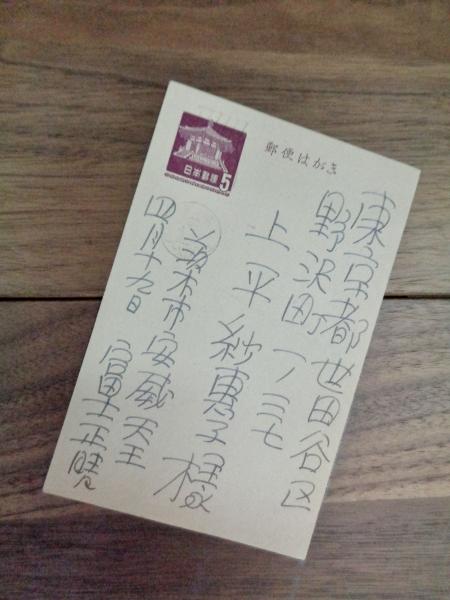 郵便はがき
日本郵便
5
東京都世田谷区
野沢町一ノ三七
上平紗恵子様
茨木市安威
四月十九日